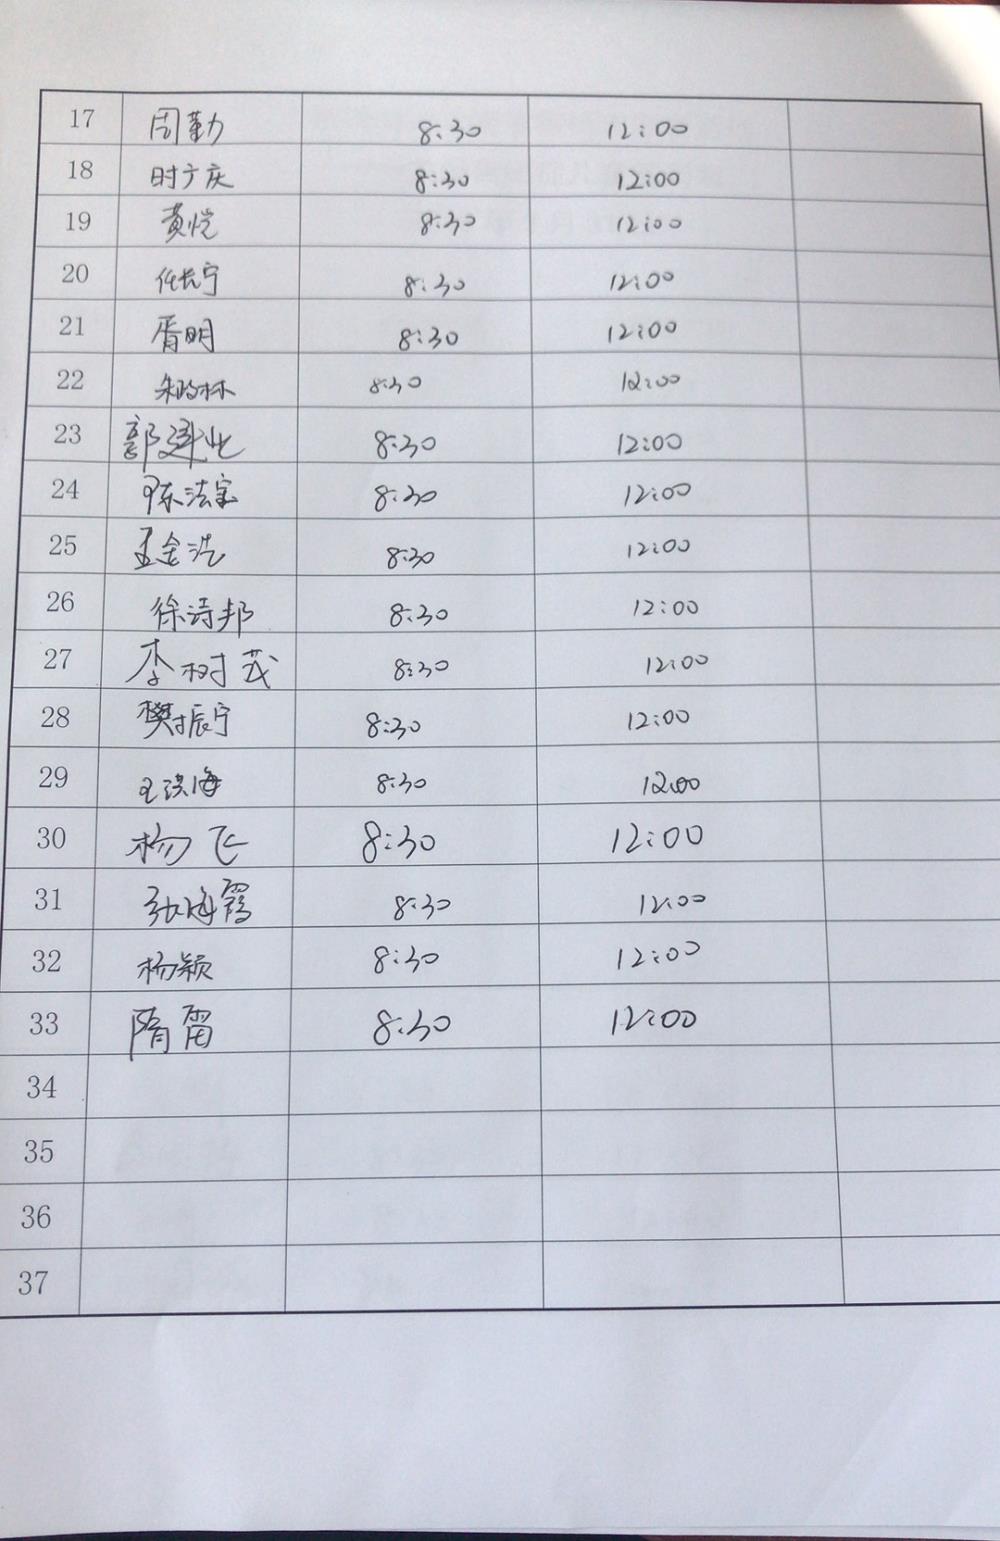 17 周勤 8:30 12:00
18 时广庆 8:30 12:00
19 黄悦 8:30 12:00
20 任长宁 8:30 12:00
21 胥明 8:30 12:00
22 朱政林 8:30 12:00
23 郭建业 8:30 12:00
24 陈法宝 8:30 12:00
25 孟金浩 8:30 12:00
26 徐诗邦 8:30 12:00
27 李树茂 8:30 12:00
28 樊振宁 8:30 12:00
29 王洪海 8:30 12:00
30 杨飞 8:30 12:00
31 张海霞 8:30 12:00
32 杨颖 8:30 12:00
33 隋雷 8:30 12:00
34
35
36
37